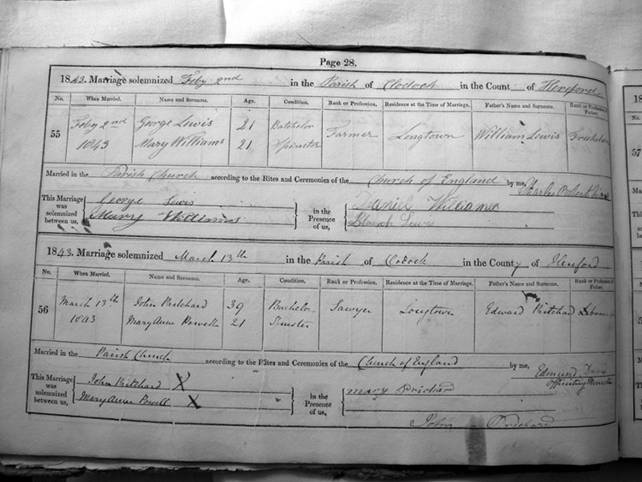 Page 28.
1843. Marriage solemnized Feby 2nd in the Parish of Clodock in the County of Hereford
No. When Married. Name and Surname. Age. Condition. Rank or Profession. Residence at the Time of Marriage. Father's Name and Surname. Rank or Profession of Father.
55 Feby 2nd George Lewis 21 Batchelor Farmer Longtown William Lewis
1843 Mary Williams 21 Spinster
Married in the Parish Church according to the Rites and Ceremonies of the Church of England by me, Charles
This Marriage was solemnized between us, George Lewis in the Presence of us, Daniel Williams
Mary Williams Lewis
1843. Marriage solemnized March 13th in the Parish of Clodock in the County of Hereford
No. When Married. Name and Surname. Age. Condition. Rank or Profession. Residence at the Time of Marriage. Father's Name and Surname. Rank or Profession of Father.
56 March 13th John Pritchard 39 Bachelor Sawyer Longtown Edward Pritchard
1843 Mary Anne Powell 21 Spinster
Married in the Parish Church according to the Rites and Ceremonies of the Church of England by me, Edmund
Officiating Minister
This Marriage was solemnized between us, John Pritchard X in the Presence of us, Mary Prichard
Mary Anne Powell X
John Prichard
57